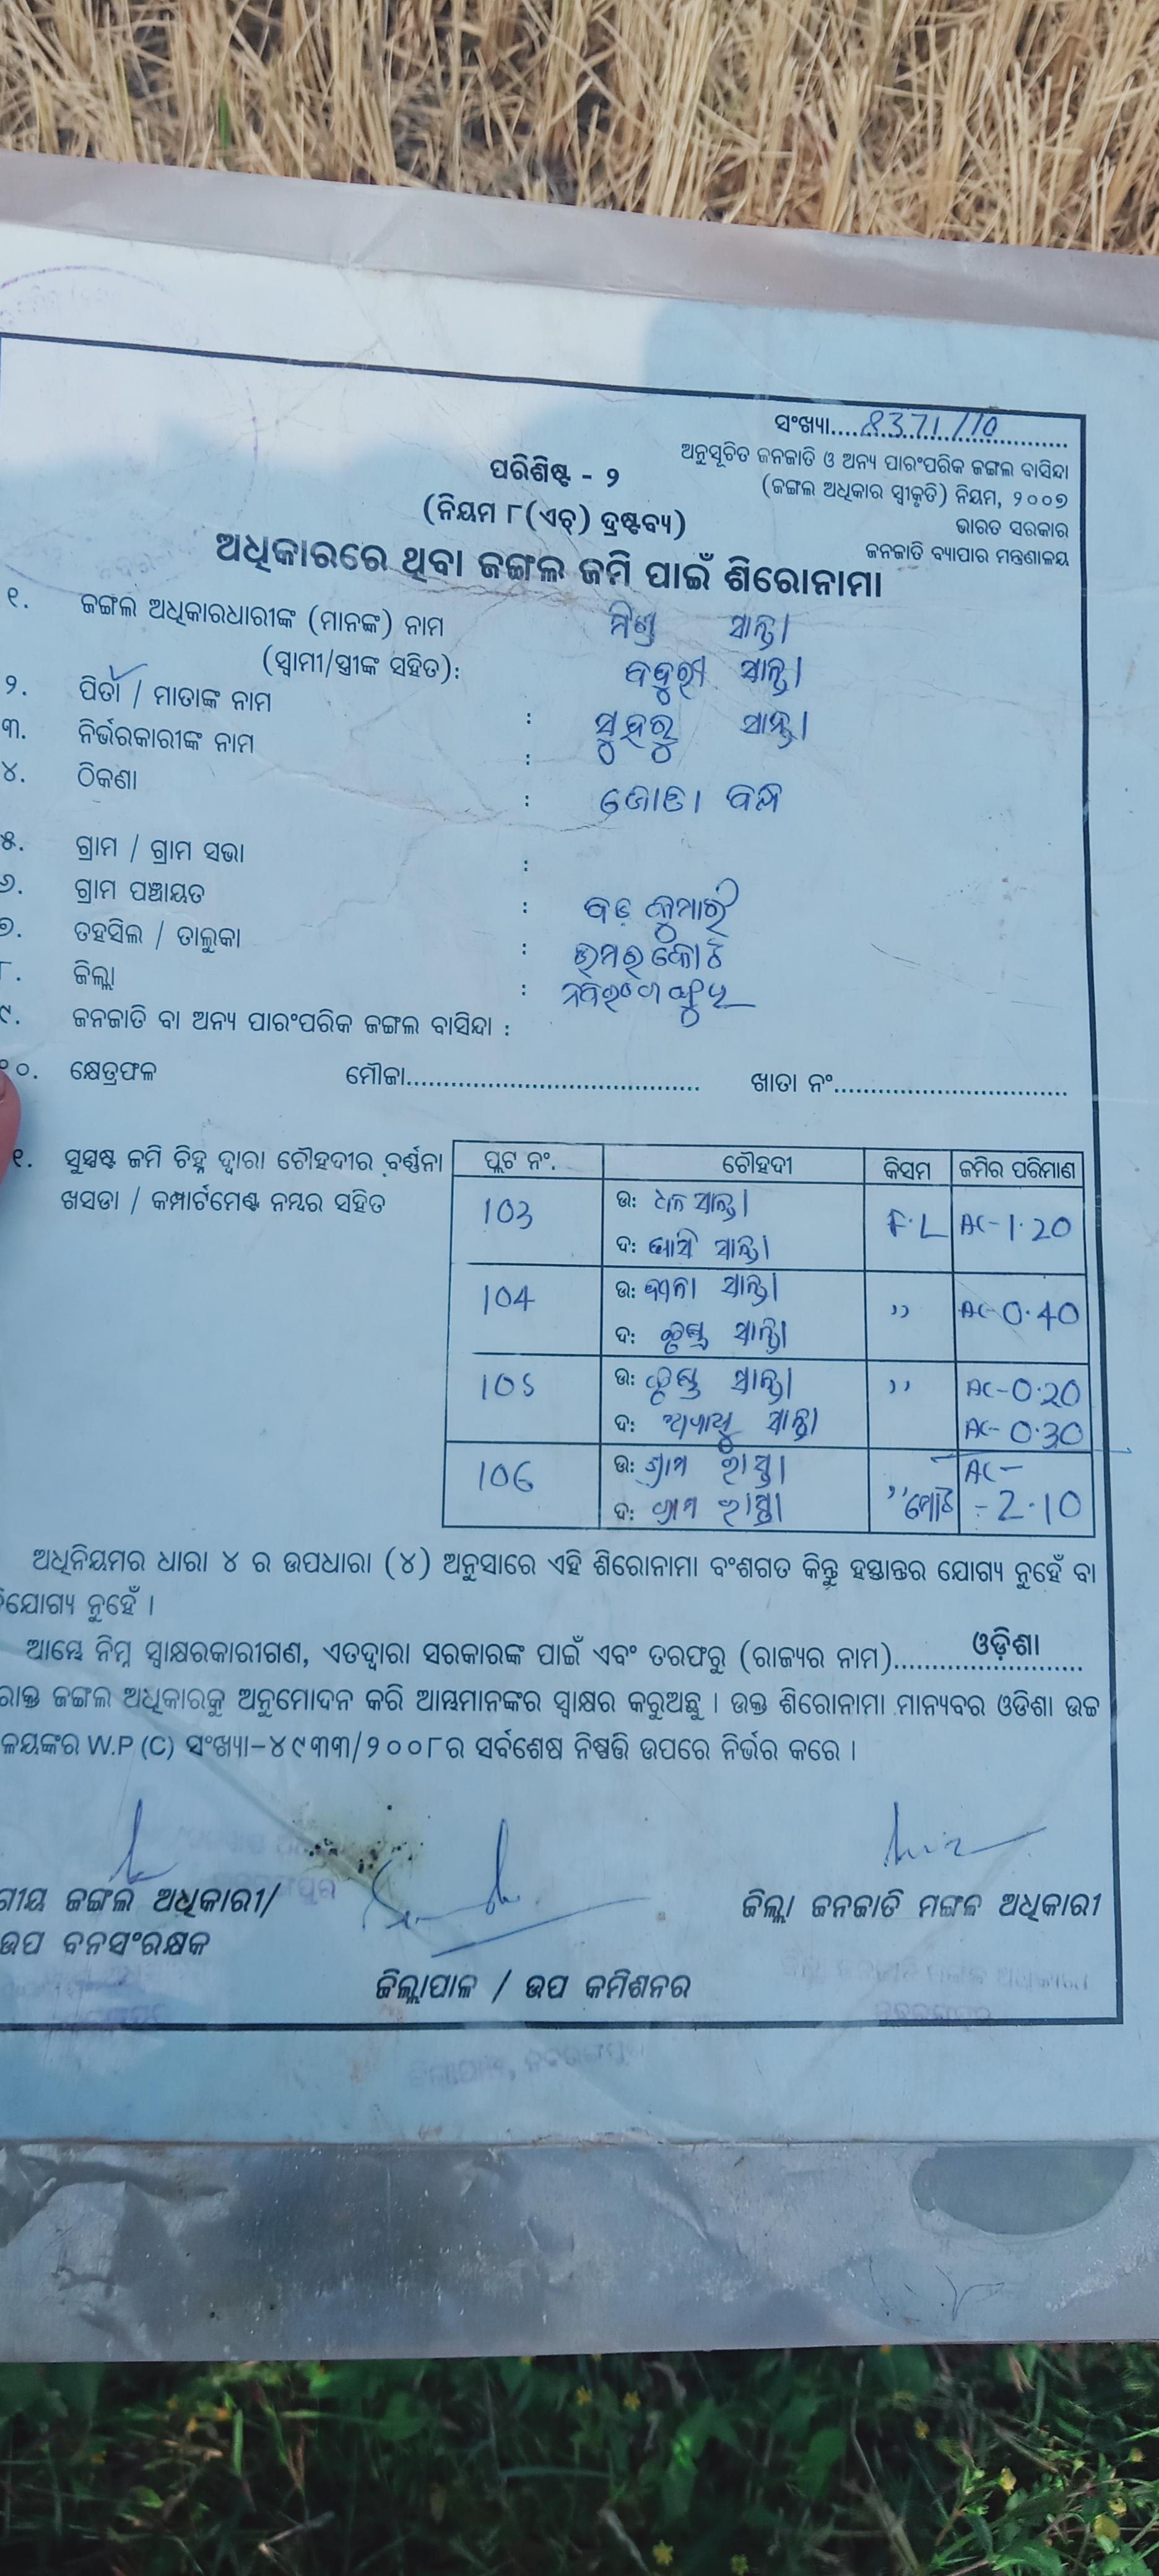 ସଂଖ୍ୟା.... 8371/10
ଅନୁସୂଚିତ ଜନଜାତି ଓ ଅନ୍ୟ ପାରଂପରିକ ଜଙ୍ଗଲ ବାସିନ୍ଦା
(ଜଙ୍ଗଲ ଅଧିକାର ସ୍ୱୀକୃତି) ନିୟମ, ୨୦୦୭
ଭାରତ ସରକାର
ଜନଜାତି ବ୍ୟାପାର ମନ୍ତ୍ରଣାଳୟ
ପରିଶିଷ୍ଟ - ୨
(ନିୟମ ୮(ଏଚ୍) ଦ୍ରଷ୍ଟବ୍ୟ)
ଅଧିକାରରେ ଥିବା ଜଙ୍ଗଲ ଜମି ପାଇଁ ଶିରୋନାମା
୧. ଜଙ୍ଗଲ ଅଧିକାରଧାରୀଙ୍କ (ମାନଙ୍କ) ନାମ ସାନ୍ତା
(ସ୍ୱାମୀ/ସ୍ତ୍ରୀଙ୍କ ସହିତ): ସାନ୍ତା
୨. ପିତା / ମାତାଙ୍କ ନାମ : ସାନ୍ତା
୩. ନିର୍ଭରକାରୀଙ୍କ ନାମ :
୪. ଠିକଣା :
୫. ଗ୍ରାମ / ଗ୍ରାମ ସଭା :
୬. ଗ୍ରାମ ପଞ୍ଚାୟତ : ବଡ଼ କୁମାରୀ
୭. ତହସିଲ / ତାଲୁକା : ଉମରକୋଟ
୮. ଜିଲ୍ଲା : ନବରଂଗପୁର
୯. ଜନଜାତି ବା ଅନ୍ୟ ପାରଂପରିକ ଜଙ୍ଗଲ ବାସିନ୍ଦା :
୧୦. କ୍ଷେତ୍ରଫଳ ମୌଜା.... ଖାତା ନଂ....
୧. ସୁସ୍ପଷ୍ଟ ଜମି ଚିହ୍ନ ଦ୍ୱାରା ଚୌହଦୀର ବର୍ଣ୍ଣନା
ଖସଡା / କମ୍ପାର୍ଟମେଣ୍ଟ ନମ୍ବର ସହିତ
ପ୍ଲଟ ନଂ. ଚୌହଦୀ କିସମ ଜମିର ପରିମାଣ
103 ଉ: ସାନ୍ତା F.L AC-1.20
ଦ: ସାନ୍ତା
104 ଉ: ସାନ୍ତା ,, AC-0.40
ଦ: ସାନ୍ତା
105 ଉ: ସାନ୍ତା ,, AC-0.20
ଦ: ସାନ୍ତା AC-0.30
106 ଉ: ଗ୍ରାମ ରାସ୍ତା ,, AC-
ଦ: ଗ୍ରାମ ରାସ୍ତା ମୋଟ -2.10
ଅଧିନିୟମର ଧାରା ୪ ର ଉପଧାରା (୪) ଅନୁସାରେ ଏହି ଶିରୋନାମା ବଂଶଗତ କିନ୍ତୁ ହସ୍ତାନ୍ତର ଯୋଗ୍ୟ ନୁହେଁ ବା
ଯୋଗ୍ୟ ନୁହେଁ ।
ଆମ୍ଭେ ନିମ୍ନ ସ୍ୱାକ୍ଷରକାରୀଗଣ, ଏତଦ୍ୱାରା ସରକାରଙ୍କ ପାଇଁ ଏବଂ ତରଫରୁ (ରାଜ୍ୟର ନାମ).... ଓଡ଼ିଶା
ରାକ୍ତ ଜଙ୍ଗଲ ଅଧିକାରକୁ ଅନୁମୋଦନ କରି ଆମ୍ଭମାନଙ୍କର ସ୍ୱାକ୍ଷର କରୁଅଛୁ । ଉକ୍ତ ଶିରୋନାମା ମାନ୍ୟବର ଓଡିଶା ଉଚ୍ଚ
ଳୟଙ୍କର W.P.(C) ସଂଖ୍ୟା-୪୯୩୩/୨୦୦୮ର ସର୍ବଶେଷ ନିଷ୍ପତ୍ତି ଉପରେ ନିର୍ଭର କରେ ।
ଗୀୟ ଜଙ୍ଗଲ ଅଧିକାରୀ/
ଉପ ବନସଂରକ୍ଷକ
ଜିଲ୍ଲାପାଳ / ଉପ କମିଶନର
ଜିଲ୍ଲା ଜନଜାତି ମଙ୍ଗଳ ଅଧିକାରୀ